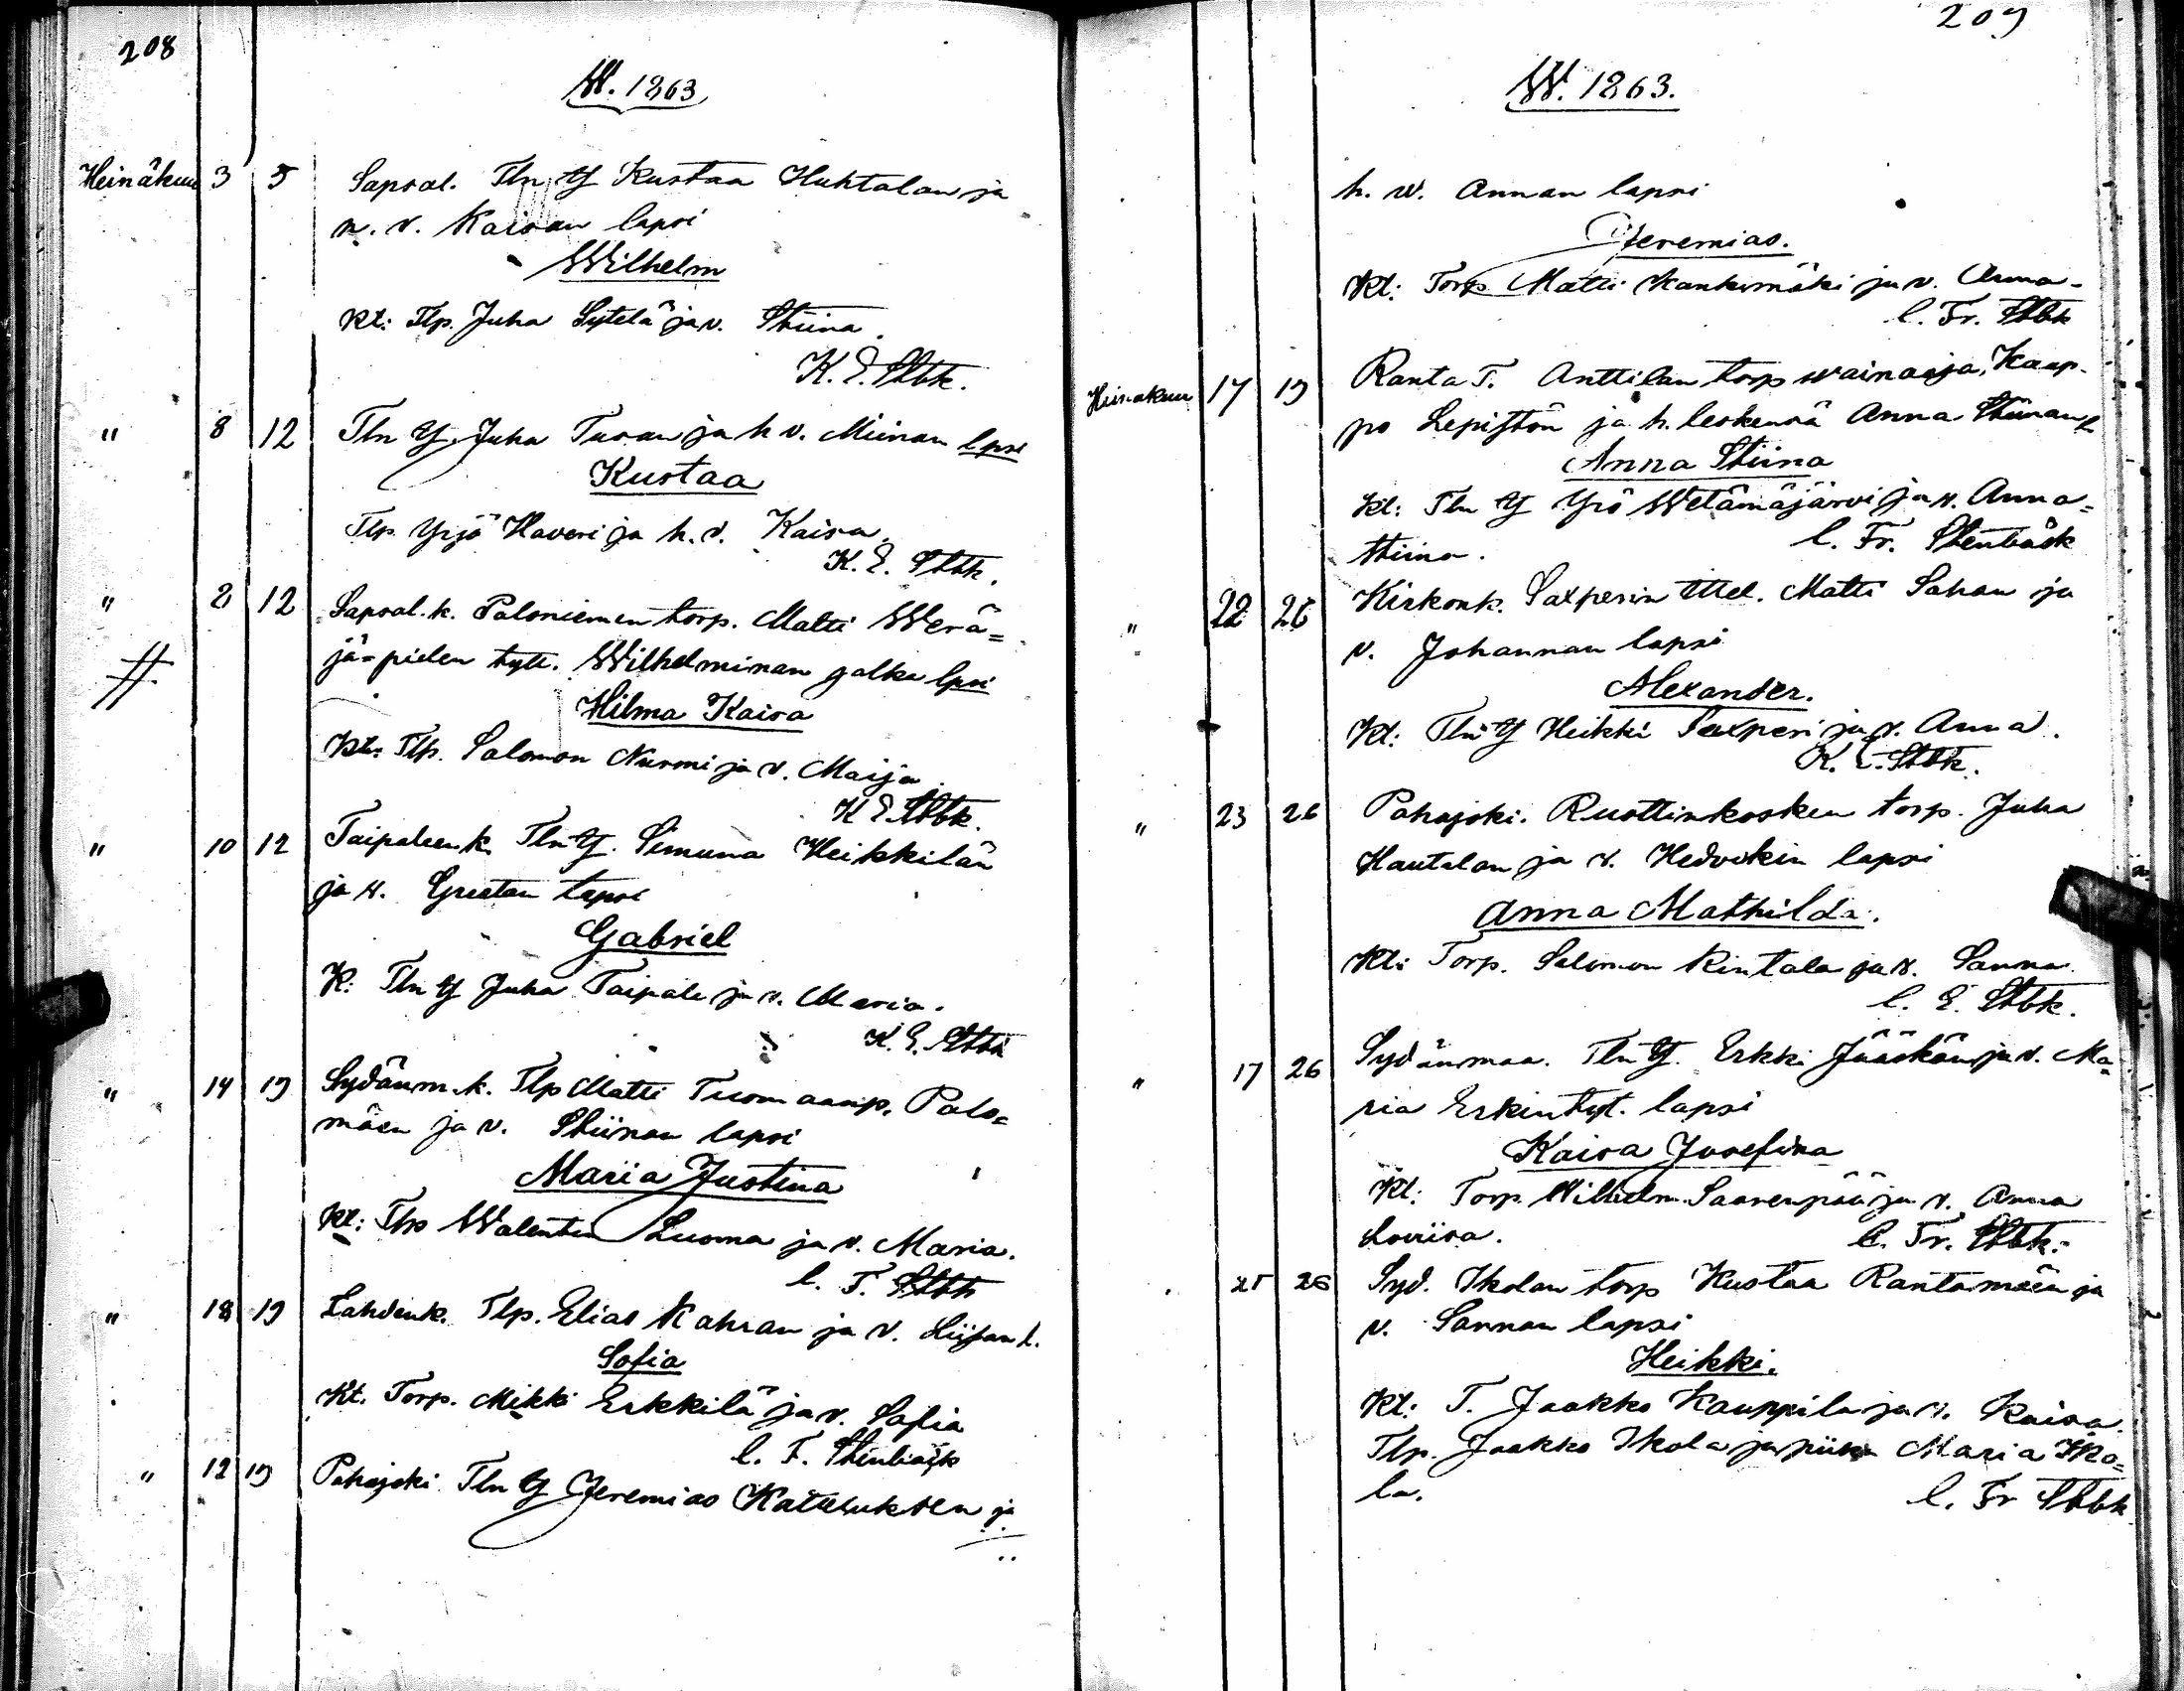 208
W. 1863
Heinäkuu 3 5 Sapsal. Tln Y Kustaa Huhtalan ja
n. v. Kaisan lapsi
Wilhelm
Kt: Tlp. Juha Sytelä ja v. Stiina.
K. E. Stbk.
" 8 12 Tln Y. Juha Turan ja h v. Miinan lpsi
Kustaa
Tlp Yrjö Haveri ja h. v. Kaisa.
K. E. Stbk.
" 2 12 Sapsal. k. Paloniemen torp. Matti Werä=
jä=pielen tytt. Wilhelminan jalka lpsi
Hilma Kaisa
Kt: Tlp. Salomon Nurmi ja v. Maija.
K E Stbk.
" 10 12 Taipaleen k. Tln Y. Simuna Heikkilän
ja v. Greetan lapsi
Gabriel
K: Tln Y Juha Taipale ja v. Maria.
K. E. Stbk
" 14 19 Sydänm. k. Tlp Matti Tuomaanp. Palo=
mäen ja v. Stiinan lapsi
Maria Justina
Kt: Tlp Walentin Luoma ja v. Maria.
C. F. Stbk
" 18 19 Lahdenk. Tlp. Elias Kahran ja v. Liisan l.
Sofia
Kt. Torp. Mikki Erkkilä ja v. Sofia
C. F. Stenbäck
" 12 19 Pahajoki Tln Y Jeremias ja
209
W. 1863.
h. w. Annan lapsi
Jeremias.
Kt: Torp. Matti Kankimäki ja v. Anna.
C. Fr. Stbk
Heinäkuu 17 19 Ranta T. Anttilan torp wainaaja, Kaap=
po Lepistön ja h. leskensä Anna Stiinan l.
Anna Stiina
Kt: Tln Y Yrjö Wetämäjärvi ja v. Anna=
stiina. C. Fr. Stenbäck
" 22 26 Kirkonk. Saxperin ttel. Matti Sahan ja
v. Johannan lapsi
Alexander.
Kt: Tln Y Heikki Saxperi ja v. Anna.
K. E. Stbk.
" 23 26 Pahajoki. Ruottinkosken torp. Juha
Hautalan ja v. Hedvikin lapsi
Anna Mathilda.
Kt: Torp. Salomon Kintala ja v. Sanna.
C. E. Stbk.
" 17 26 Sydänmaa. Tln Y. Erkki Jääskän ja v. Ma=
ria Erkintyt. lapsi
Kaisa Josefina
Kt: Torp. Wilhelm Saarenpää ja v. Anna
Loviisa. C. Fr. Stbk.
25 26 Syd. Ikolan torp Kustaa Rantamäen ja
v. Sannan lapsi
Heikki.
Kt: T. Jaakko Kauppila ja v. Kaisa.
Tlp. Jaakko Ikola ja piika Maria Iko=
la. C. Fr Stbk